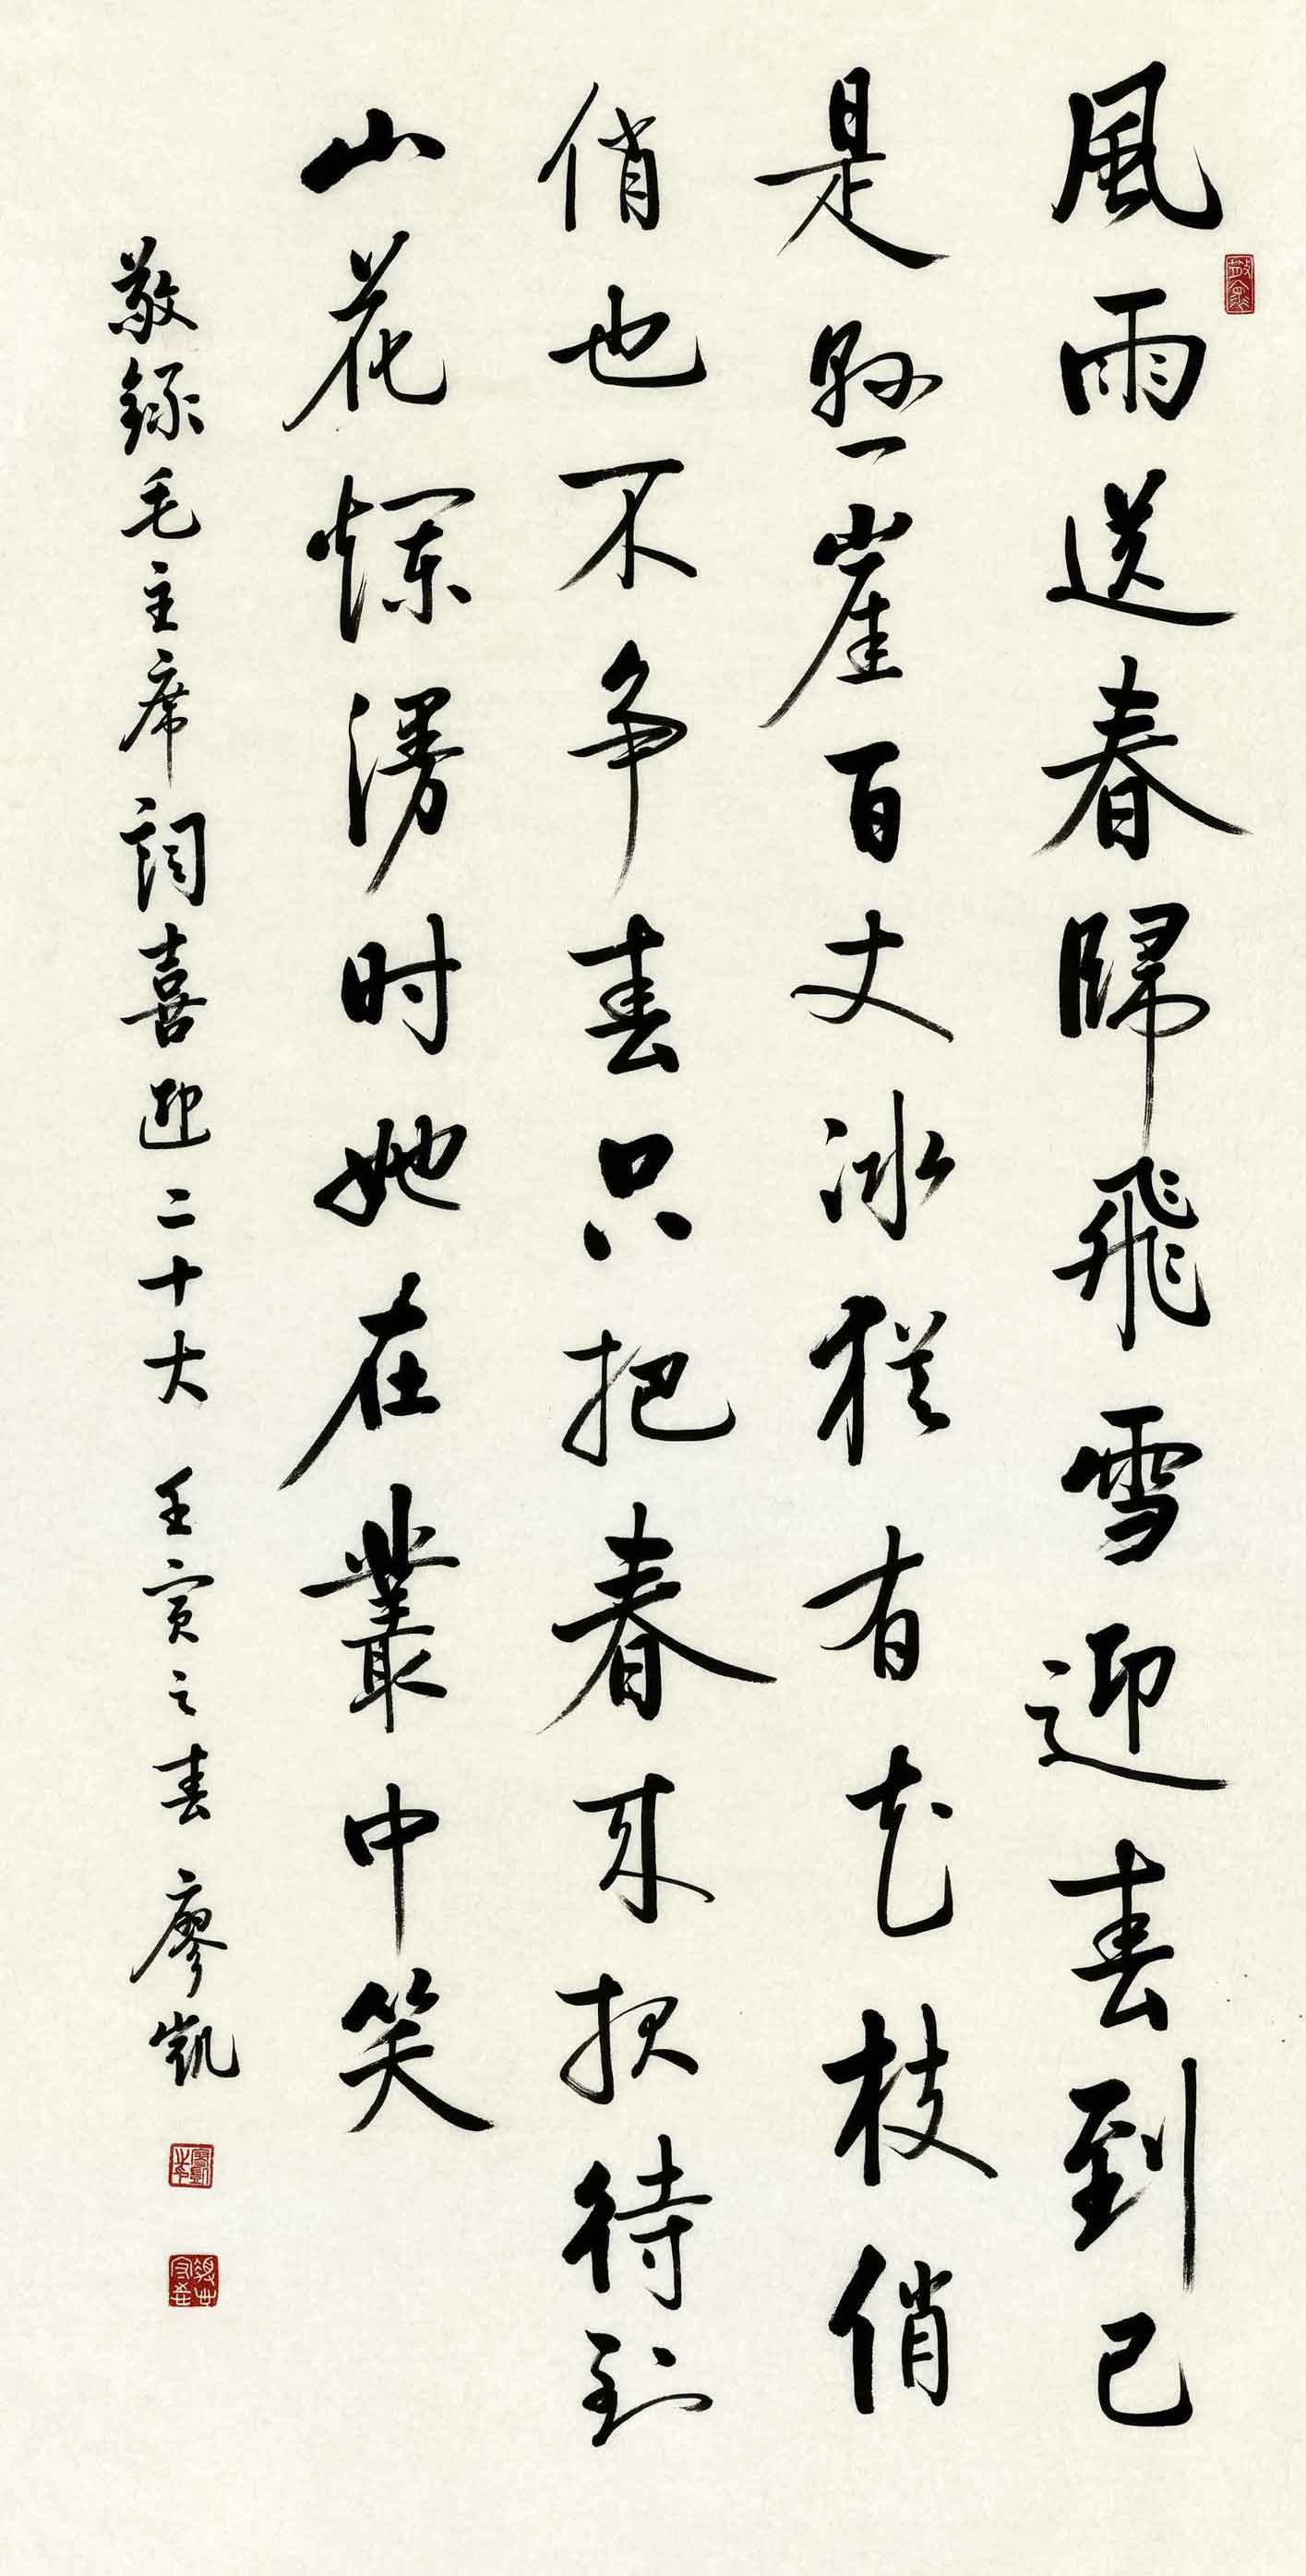 風雨送春歸飛雪迎春到已
是懸崖百丈冰猶有花枝俏
俏也不争春只把春來报待到
山花爛漫时她在叢中笑
敬錄毛主席詞喜迎二十大 壬寅之春 廖凱